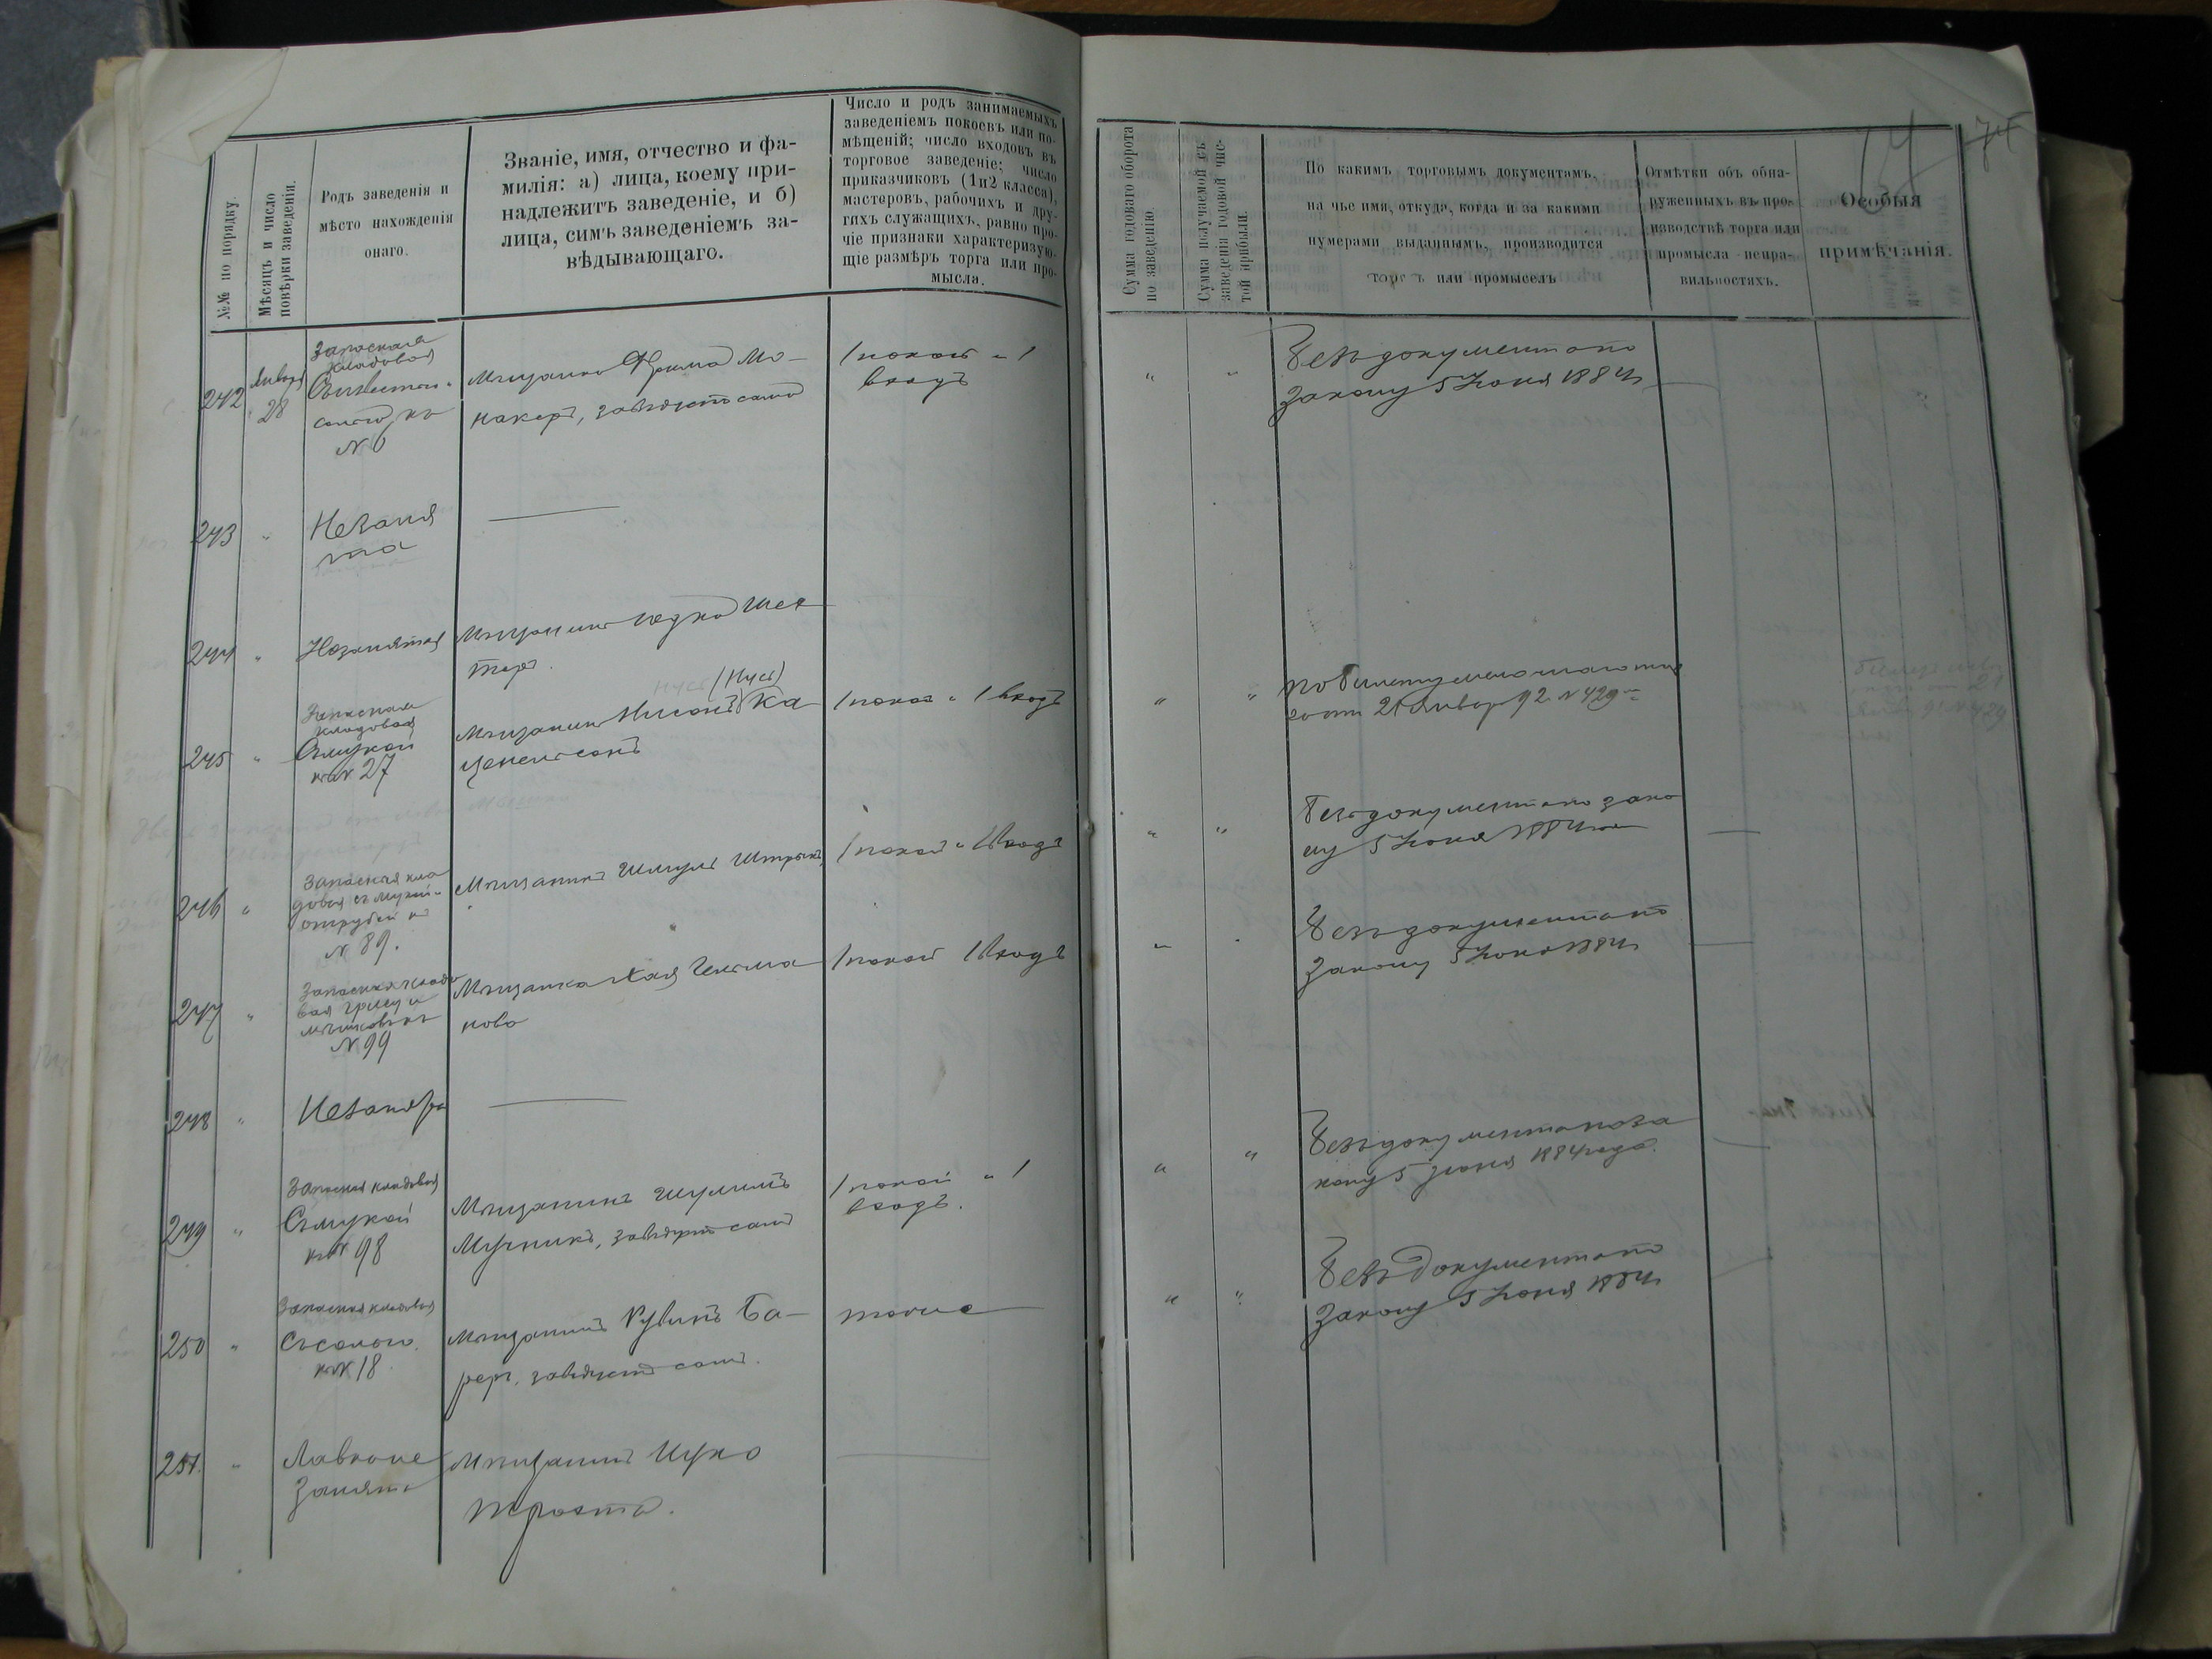 №№ по порядку.
Мѣсяцъ и число
повѣрки заведенія.
Родъ заведенія и
мѣсто нахожденія
онаго.
Званіе, имя, отчество и фа-
милія: а) лица, коему при-
надлежитъ заведеніе, и б)
лица, симъ заведеніемъ за-
вѣдывающаго.
Число и родъ занимаемыхъ
заведеніемъ покоевъ или по-
мѣщеній; число входовъ въ
торговое заведеніе; число
приказчиковъ (1и2 класса),
мастеровъ, рабочихъ и дру-
гихъ служащихъ, равно про-
чіе признаки характеризую-
щіе размѣръ торга или про-
мысла.
Сумма годоваго оборота
по заведенію.
Сумма получаемой съ
заведенія годовой чис-
той прибыли.
По какимъ торговымъ документамъ,
на чье имя, откуда, когда и за какими
нумерами выданнымъ, производится
торгъ или промыселъ
Отмѣтки объ обна-
руженныхъ въ про-
изводствѣ торга или
промысла неправ-
вильностяхъ.
Особыя
примѣчанія.
74
242
Января
28
Запасная
кладовая
№ 6
Мѣщанинъ Фроимъ Мо-
накеръ, завѣдуетъ самъ
1 покой " 1
входъ
" "
Безъ документа по
Закону 5 Іюня 1884 г.
243 "
Незаня
та
244 "
Незанятая
Мѣщанинъ
245 "
Запасная
кладовая
Съ мукой
на № 27
Мѣщанинъ Нисонъ (Нусъ) Ка
ценельсонъ
1 покой " 1 входъ
" "
По билету мелочнаго тор
21 Января 92 № 429
246 "
Запасная кла
довая съ мукой и
отрубей на
№ 89.
Мѣщанинъ Шмуль
1 покой " 1 входъ
" "
Безъ документа по зако
ну 5 Іюня 1884 г.
247 "
Запасная кладо
вая
№ 99
Мѣщанка Хая
нова
1 покой 1 входъ
Безъ документа по
Закону 5 Іюня 1884 г.
248 "
Незанята
249 "
Запасная кладовая
Съ мукой
на № 98
Мѣщанинъ Шулимъ
Мучникъ, завѣдуетъ самъ
1 покой " 1
входъ.
" "
Безъ документа по за
кону 5 Іюня 1884 года.
250 "
Запасная кладовая
№ 18.
Мѣщанинъ Рувинъ Ба-
реръ, завѣдуетъ самъ.
тоже
" "
Безъ документа по
Закону 5 Іюня 1884 г.
251. "
Лавка не
занята
Мѣщанинъ